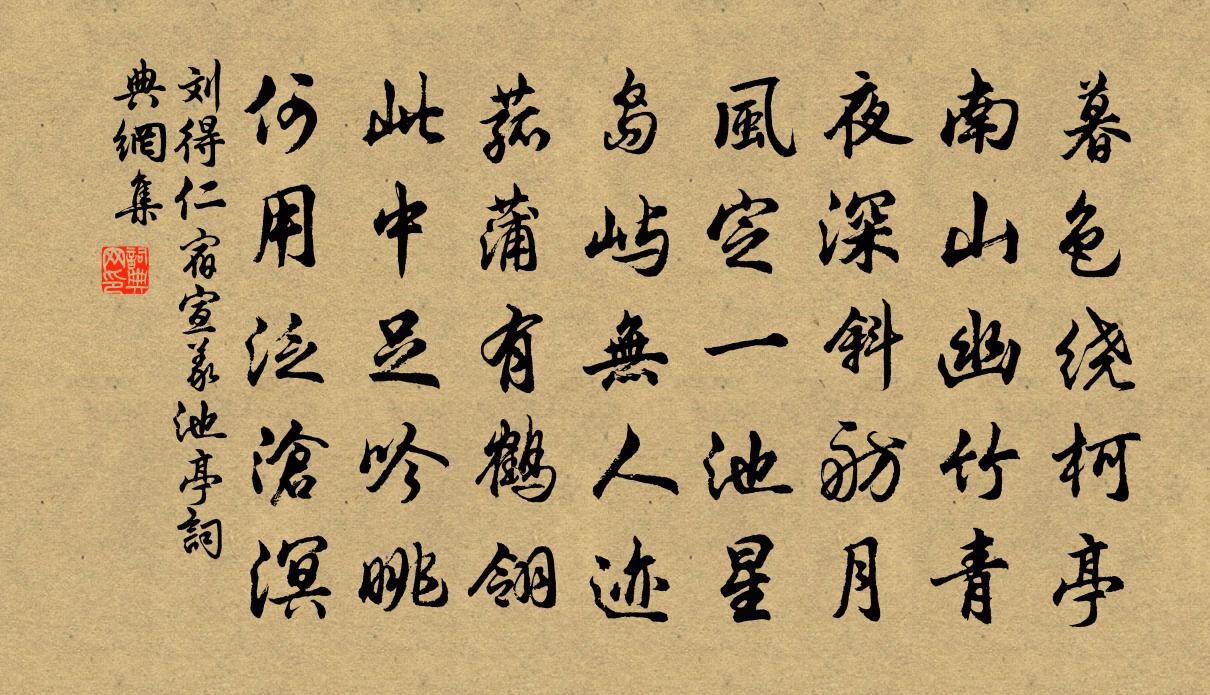 暮色绕柯亭
南山幽竹青
夜深斜舫月
風定一池星
島屿無人迹
菰蒲有鶴翎
此中足吟眺
何用泛滄溟
刘得仁宿宣義池亭詞
典網集
詞典網印